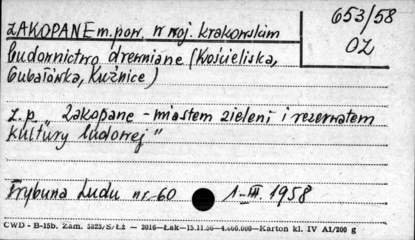 ZAKOPANE m. pow. w woj. krakowskim
653/58
OZ
budownictwo drewniane (Kościeliska,
Gubałówka, Kuźnice)
z.p. „Zakopane - miastem zieleni i rezerwatem
kultury ludowej"
Trybuna Ludu nr 60 1-III. 1958
CWD - B-15b. Zam. 5323/S/Łż — 2016—Łak—15.11.56—4.000.000—Karton kl. IV A1/200 g